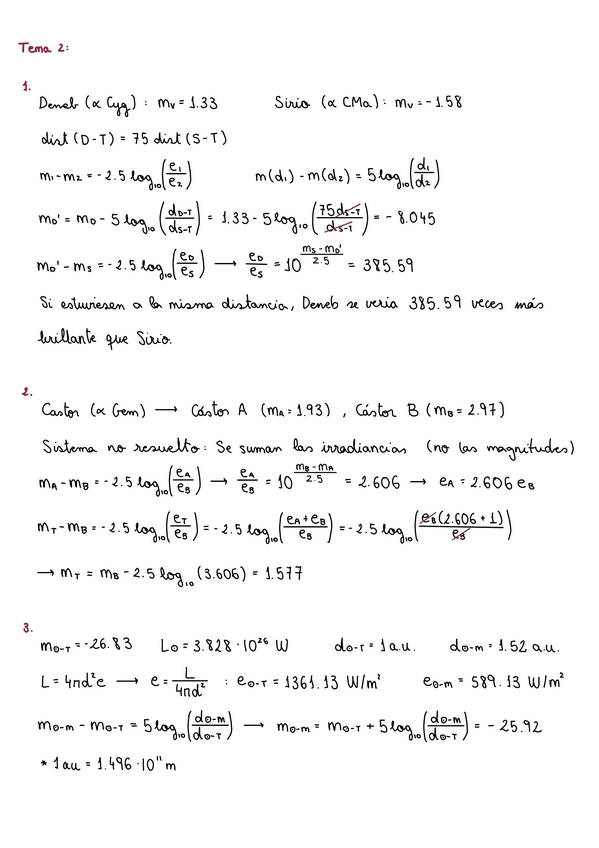 Tema 2:
1.
Deneb (α Cyg) : mv = 1.33 Sirio (α CMa) : mv = -1.58
dist (D-T) = 75 dist (S-T)
m₁-m₂ = -2.5 log₁₀(e₁/e₂) m(d₁) - m(d₂) = 5 log₁₀(d₁/d₂)
m_D' = m_D - 5 log₁₀(d_D-T/d_S-T) = 1.33 - 5 log₁₀(75 d_S-T/d_S-T) = -8.045
m_D' - m_S = -2.5 log₁₀(e_D/e_S) → e_D/e_S = 10^((m_S - m_D')/2.5) = 385.59
Si estuviesen a la misma distancia, Deneb se vería 385.59 veces más
brillante que Sirio.
2.
Castor (α Gem) → Cástor A (m_A = 1.93) , Cástor B (m_B = 2.97)
Sistema no resuelto: Se suman las irradiancias (no las magnitudes)
m_A - m_B = -2.5 log₁₀(e_A/e_B) → e_A/e_B = 10^((m_B - m_A)/2.5) = 2.606 → e_A = 2.606 e_B
m_T - m_B = -2.5 log₁₀(e_T/e_B) = -2.5 log₁₀((e_A + e_B)/e_B) = -2.5 log₁₀(e_B(2.606 + 1)/e_B)
→ m_T = m_B - 2.5 log₁₀(3.606) = 1.577
3.
m_⊙-T = -26.83 L⊙ = 3.828·10²⁶ W d_⊙-T = 1 a.u. d_⊙-m = 1.52 a.u.
L = 4πd²e → e = L/4πd² : e_⊙-T = 1361.13 W/m² e_⊙-m = 589.13 W/m²
m_⊙-m - m_⊙-T = 5 log₁₀(d_⊙-m/d_⊙-T) → m_⊙-m = m_⊙-T + 5 log₁₀(d_⊙-m/d_⊙-T) = -25.92
* 1 au = 1.496·10¹¹ m